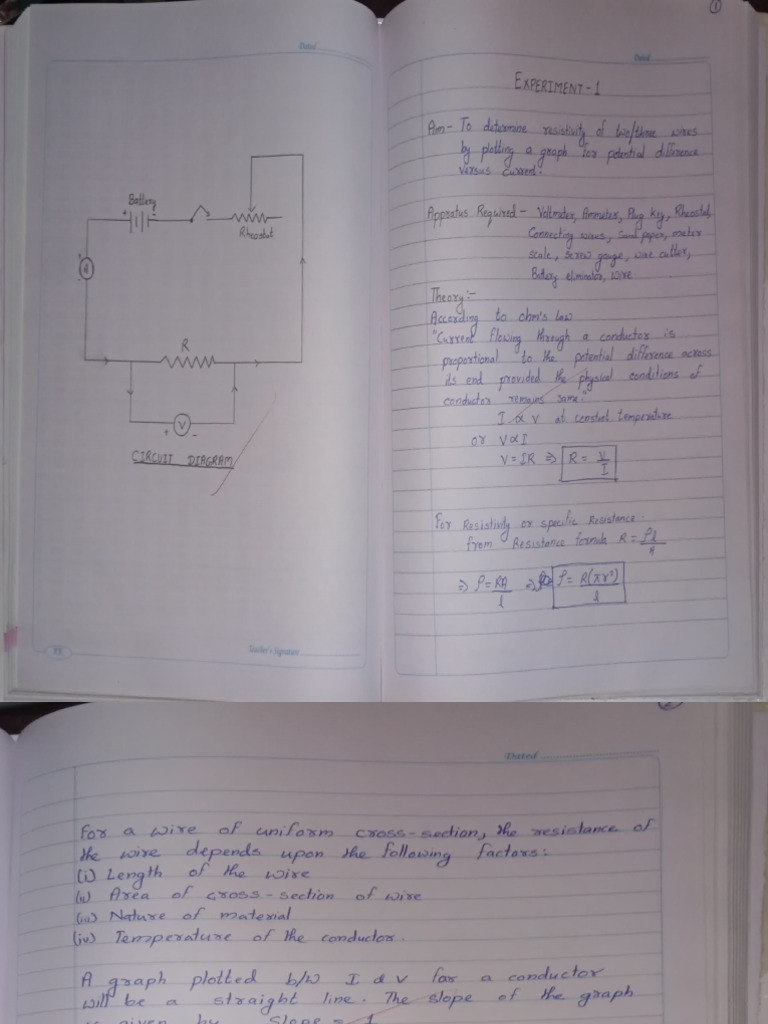 Dated
Battery
+
Rheostat
A
R
+ V -
CIRCUIT DIAGRAM
Teacher's Signature
1
Dated
EXPERIMENT-1
Aim- To determine resistivity of two/three wires
by plotting a graph for potential difference
versus current.
Appratus Required - Voltmeter, Ammeter, Plug key, Rheostat,
Connecting wires, Sand paper, meter
scale, screw gauge, wire cutter,
Battery eliminator, wire
Theory:-
According to ohm's law
"Current flowing through a conductor is
proportional to the potential difference across
its end provided the physical conditions of
conductor remains same."
I ∝ V at constant temperature
or V∝I
V=IR ⇒ R = V/I
For Resistivity or specific Resistance.
from Resistance formula R = ρl/A
⇒ ρ = RA/l ⇒ ρ = R(πr²)/l
2
Dated
For a wire of uniform cross-section, the resistance of
the wire depends upon the following factors:
(i) Length of the wire
(ii) Area of cross-section of wire
(iii) Nature of material
(iv) Temperature of the conductor.
A graph plotted b/w I & V for a conductor
will be a straight line. The slope of the graph
is given by slope = 1